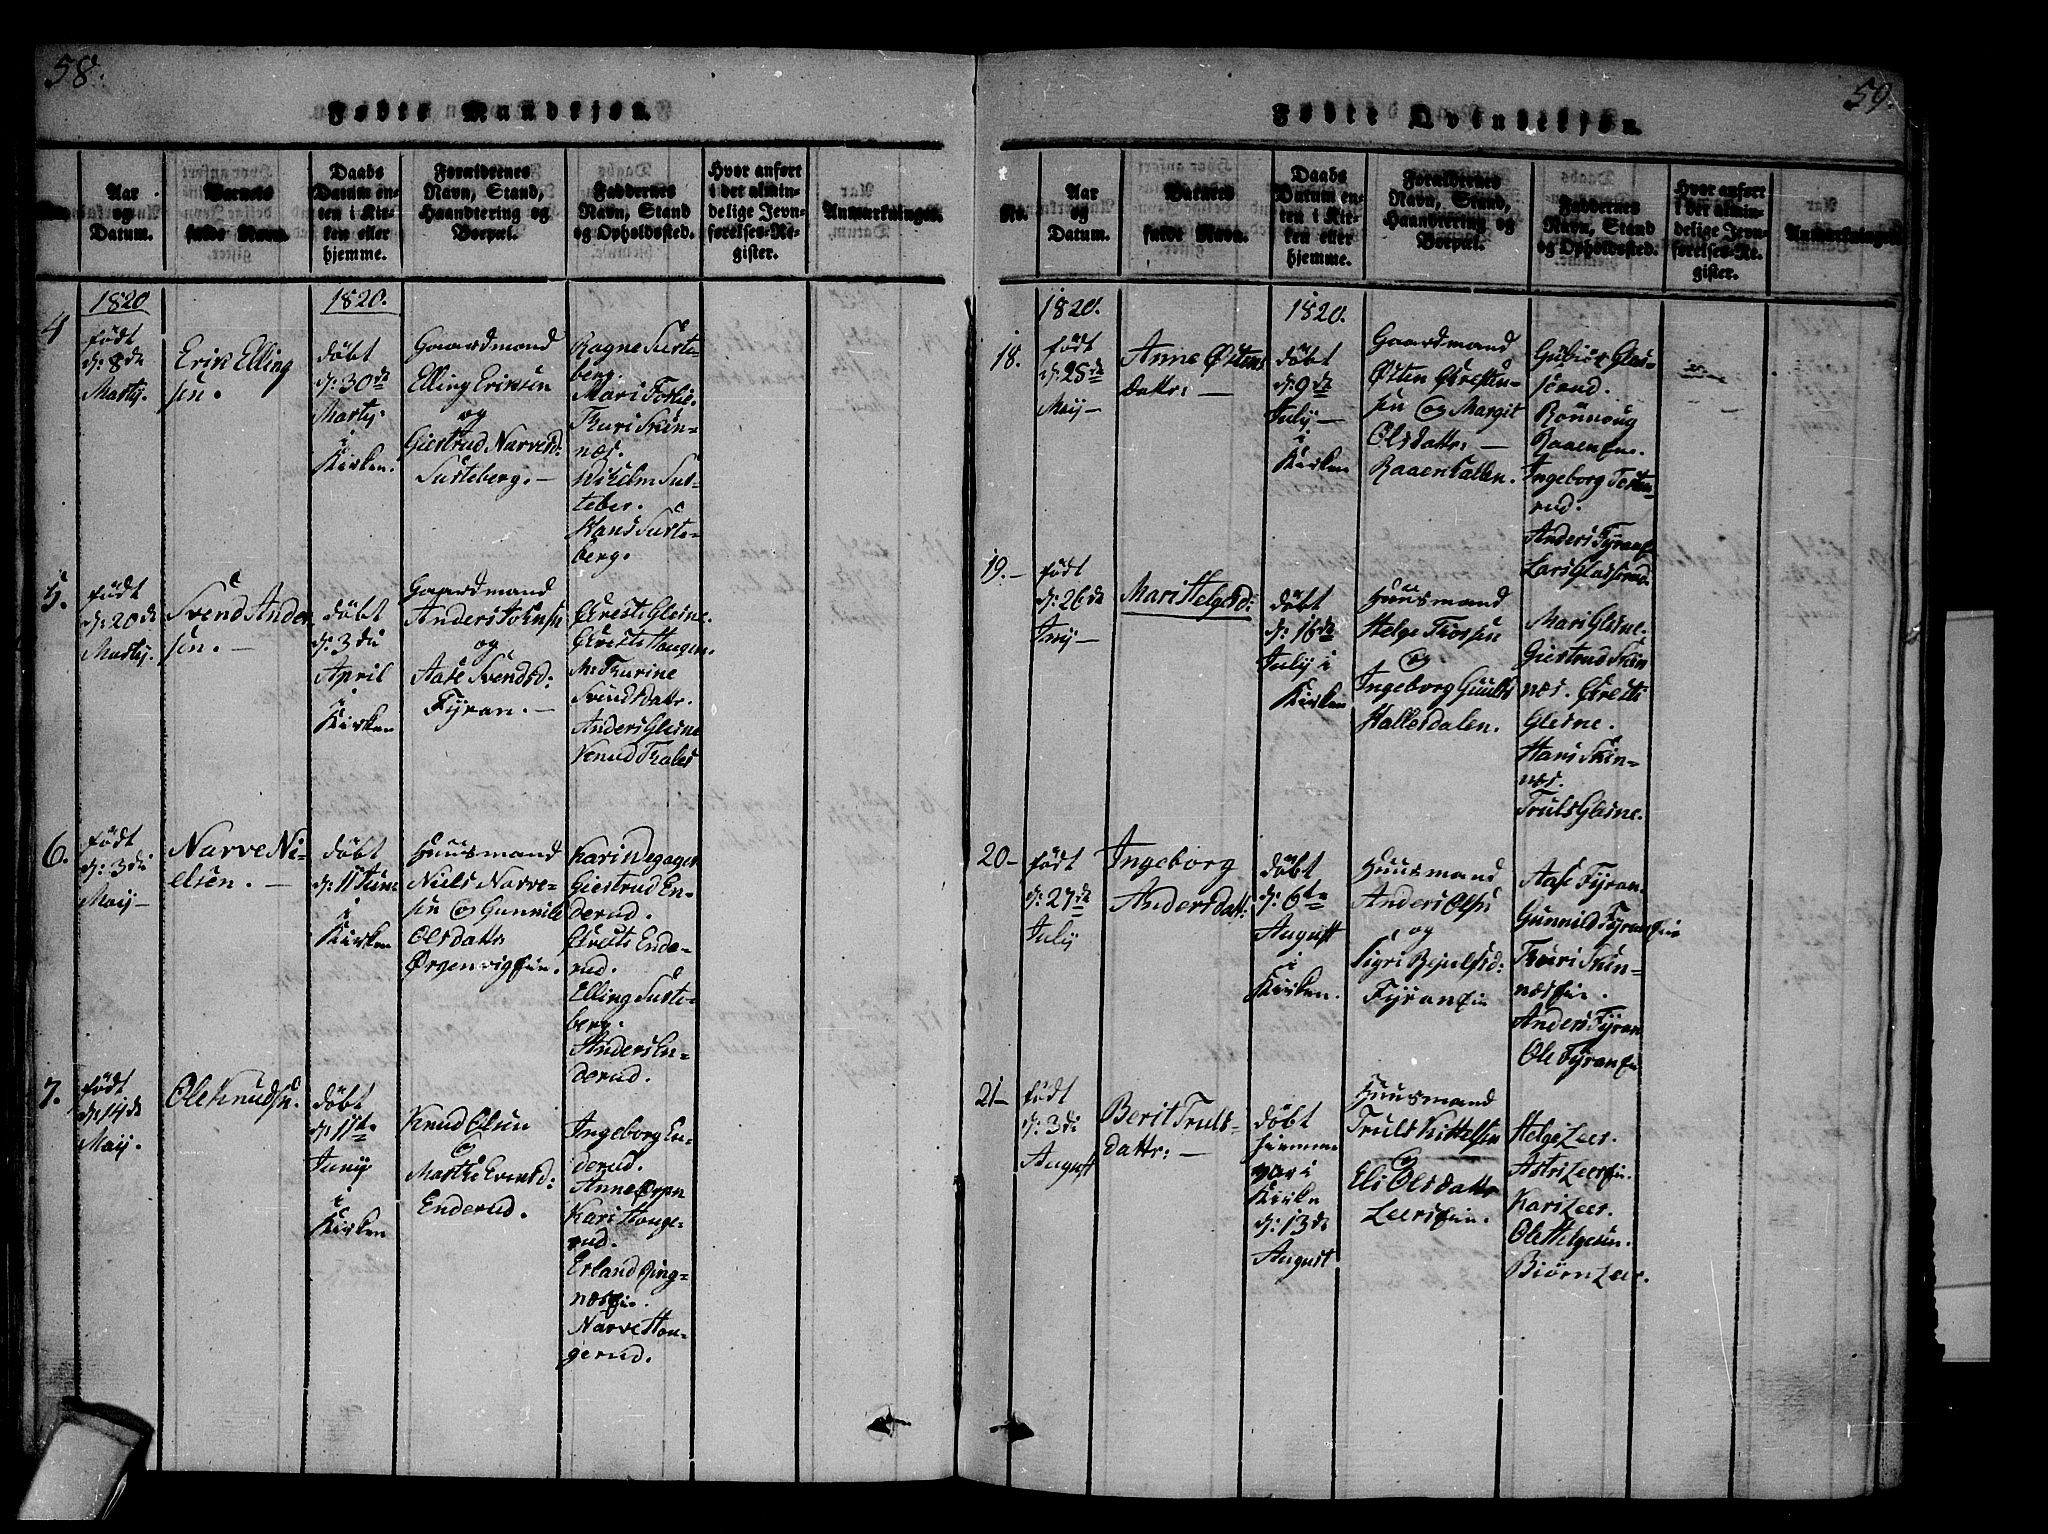 58.
Fødte Mandkjøn.
No.
Aar
og
Datum.
Barnets
fulde Navn.
Daabs
Datum en-
ten i Kir-
ken eller
hjemme.
Forældrenes
Navn, Stand,
Haandtering og
Boepæl.
Faddernes
Navn, Stand
og Opholdssted.
Hvor anført
i det almin-
delige Jevn-
førelses-Re-
gister.
Anmærkninger.
4
1820
født
d: 8de
Martij.
Erik Elling
sen.
1820.
døbt
d: 30de
Martij.
i
Kirken.
Gaardmand
Elling Eriksen
og
Giertrud Narvesd:
Susteberg. —
Ragne Suste-
berg.
Mari Foslie.
Thuri Skin-
næs.
Wilhelm Sus-
teber.
Hans Suste-
berg.
5.
født
d: 20de
Martij.
Svend Ander
sen. —
døbt
d: 3die
April
i
Kirken
Gaardmand
Anders Johnsen
og
Aase Svendsd:
Fÿran. —
Christi Glesne.
Christi Haugen.
Thurine
Svendsdatr.
Anders Glesne
Knud Trales
6.
født
d: 3die
Maij —
Narve Ni-
elsen. —
døbt
d: 11 Juni
i
Kirken
Huusmand
Niels Narve-
sen og Gunnild
Olsdattr
Ørgenvig eie.
Kari Degager
Giertrud En-
derud.
Christi Ende-
rud.
Elling Suste-
berg.
Anders En-
derud.
7.
født
d: 14de
Maij.
Ole Knudsen.
døbt
d: 11te
Junij
i
Kirken
Knud Olsen
og
Marthe Evensd:
Enderud.
Ingeborg En-
derud.
Anne Ørgn
Kari Houge-
rud.
Erland Ring-
næs eie.
Narve Hou-
gerud.
59.
Fødte Qvindekjøn.
No.
Aar
og
Datum.
Barnets
fulde Navn.
Daabs
Datum en-
ten i Kir-
ken eller
hjemme.
Forældrenes
Navn, Stand,
Haandtering og
Boepæl.
Faddernes
Navn, Stand
og Opholdssted.
Hvor anført
i det almin-
delige Jevn-
førelses-Re-
gister.
Anmærkninger.
18.
1820.
født
d: 25de
Maij —
Anne Østens
datter: —
1820.
døbt
d: 9de
Julij —
i
Kirken
Gaardmand
Østen Christen-
sen og Margit
Olsdattr: —
Raaenhallen.
Glas-
serud.
Rönnoug
Raaen eie.
Ingeborg
rud.
Anders Fÿran eie
Lars Glasserud.
19. —
født
d: 26de
Junij —
Mari Helgesd:
døbt
d: 16de
Julij i
Kirken
Huusmand
Helge Thorsen
og
Ingeborg Guulbr
Hallesdalen.
Mari Glesne.
Giertrud Skin
næs. Christi
Glesne.
Hans Skin-
næs.
Truls Glesne.
20 —
født
d: 27de
Julij
Ingeborg
Andersdatt:
døbt
d: 6te
August
i
Kirken.
Huusmand
Anders Olsen
og
Sigri Bejulsd:
Fÿran eie
Aase Fÿran.
Gunnild Fÿran eie
Thuri Skin-
næs eie.
Anders Fÿran
Ole Fÿran eie
21 —
født
d: 3die
August
Berit Truls-
datter: —
døbt
hiemme
var i
Kirke
d: 13de
August
Huusmand
Truls Kittelsen
og
Eli Olsdattr
Leers eie.
Helge Leer.
Astri Leer eie.
Kari Leer.
Ole Helgesen.
Biørn Leer.